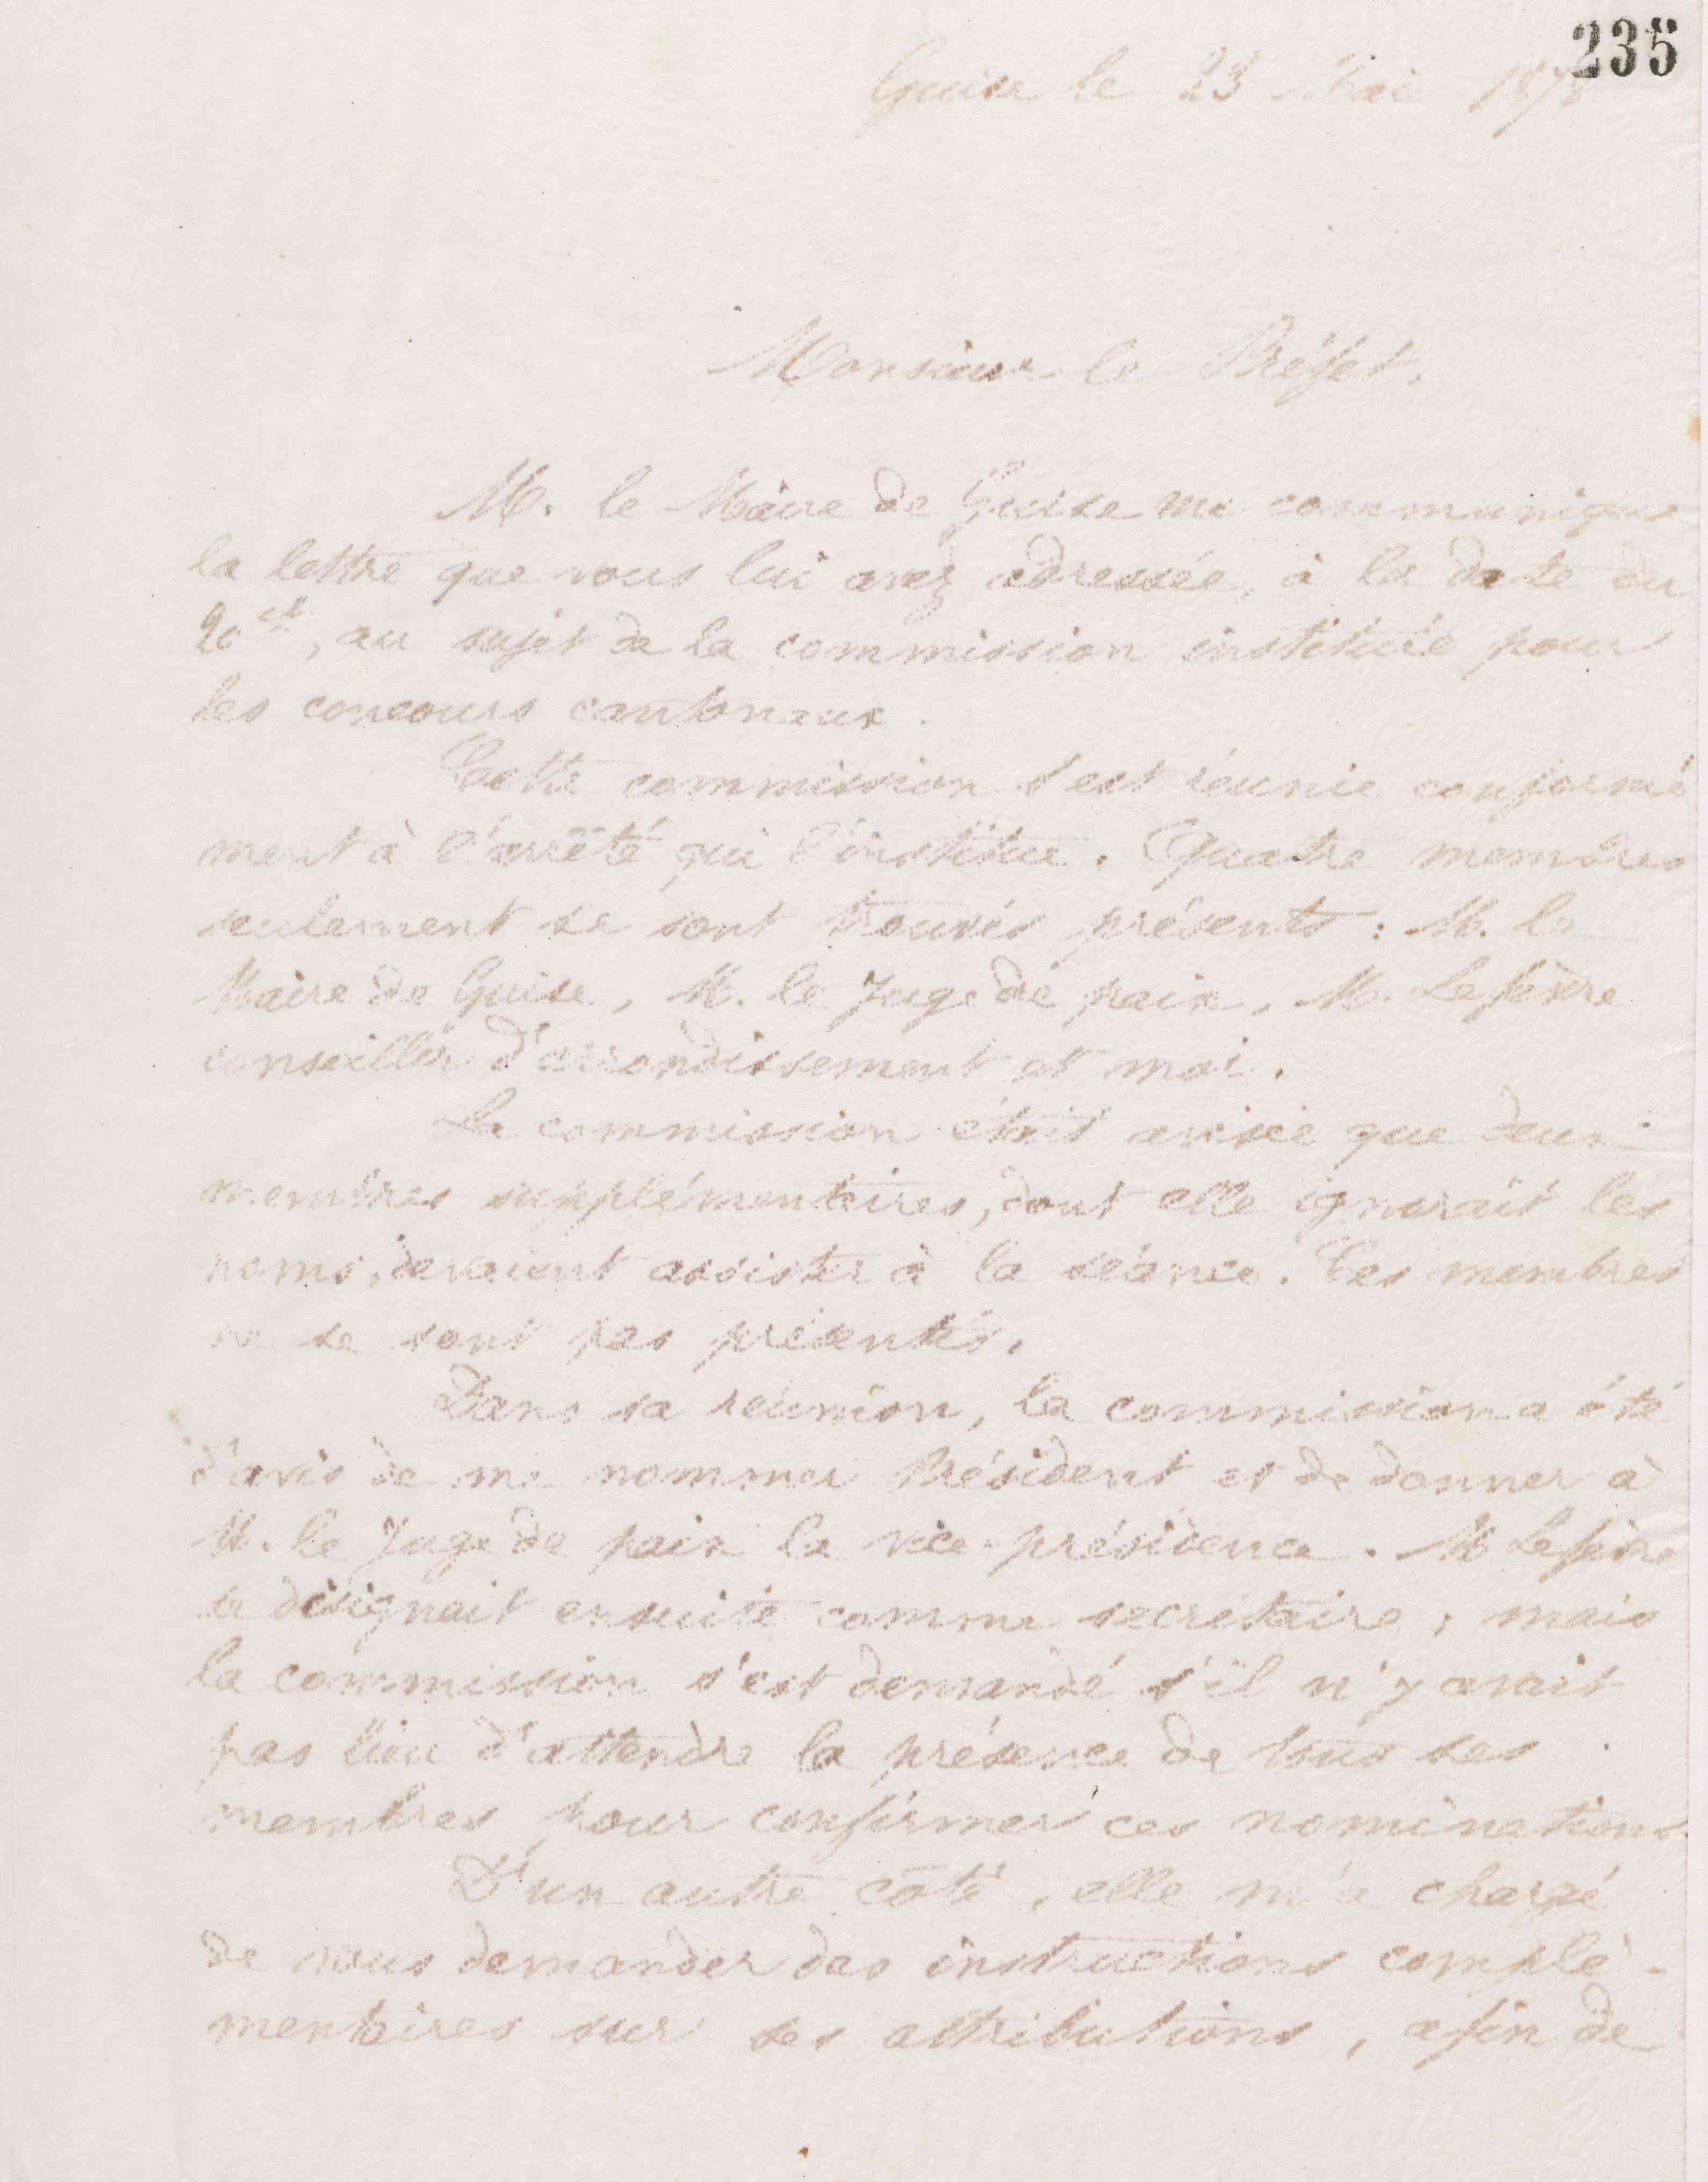 235
Guise le 23 Mai 1878
Monsieur le Préfet,
M. le Maire de Guise me communique
la lettre que vous lui avez adressée, à la date du
20 ct, au sujet de la commission instituée pour
les concours cantonaux.
Cette commission s'est réunie conformé
ment à l'arrêté qui l'institue. Quatre membres
seulement se sont trouvés présents : M. le
Maire de Guise, M. le Juge de paix, M. Lefèvre
conseiller d'arrondissement et moi.
La commission était avisée que deux
membres supplémentaires, dont elle ignorait les
noms, devaient assister à la séance. Ces membres
ne se sont pas présentés.
Dans sa réunion, la commission a été
d'avis de me nommer Président et de donner à
M. le Juge de paix la vice-présidence. M Lefèvre
se désignait ensuite comme secrétaire ; mais
la commission s'est demandé s'il n'y avait
pas lieu d'attendre la présence de tous ses
membres pour confirmer ces nominations.
D'un autre côté, elle m'a chargé
de vous demander des instructions complé-
mentaires sur ses attributions, afin de